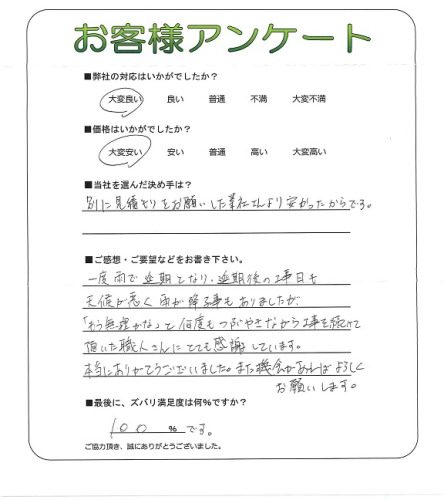 お客様アンケート
■弊社の対応はいかがでしたか?
大変良い 良い 普通 不満 大変不満
■価格はいかがでしたか?
大変安い 安い 普通 高い 大変高い
■当社を選んだ決め手は?
別に見積もりをお願いした業社さんより安かったからです。
■ご感想・ご要望などをお書き下さい。
一度雨で延期となり、延期後の工事日も
天候が悪く雨が降る事もありましたが、
「もう無理かな」と何度もつぶやきながら工事を続けて
頂いた職人さんにとても感謝しています。
本当にありがとうございました。また機会があれば よろしく
お願いします。
■最後に、ズバリ満足度は何%ですか?
100 % です。
ご協力頂き、誠にありがとうございました。